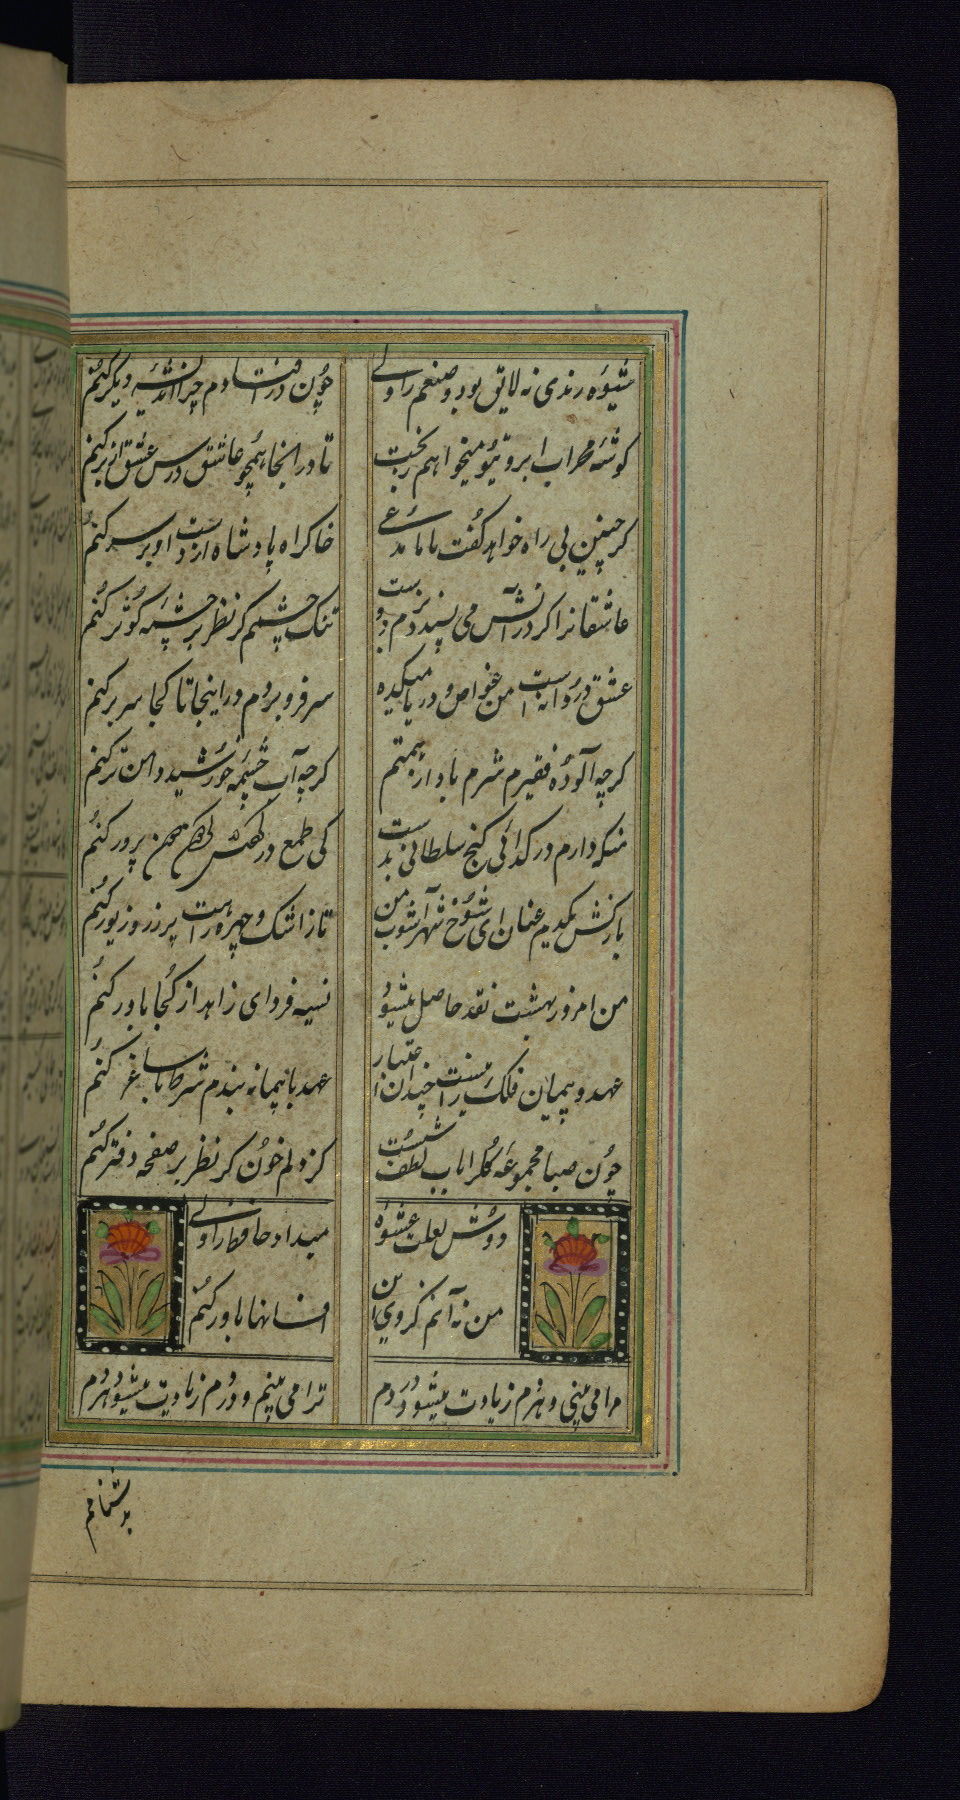 شیوه رندی نه لایق بود وضعم را ولی
چون در افتادم چرا اندیشه دیگر کنم
گوشه محراب ابروی تو میخواهم ز بخت
تا در انجا همچو عاشق درس عشق از بر کنم
گر چنین بی راه خواهد گفت با ما مدعی
خاک راه پادشاه از دست او بر سر کنم
عاشقانرا گر در آتش می پسندد دوست
تنک چشمم گر نظر بر چشمه کوثر کنم
عشق دردانه است من غواص و دریا میکده
سر فرو بردم در اینجا تا کجا سر بر کنم
گرچه آلوده فقیرم شرم باد از همتم
گرچه آب چشمه خورشید دامن تر کنم
منکه دارم در گدائی گنج سلطانی بدست
کی طمع در پرور کنم
بازکش یکدم عنان ای شوخ شهرآشوب من
تا ز اشک و چهره راهت پر زر و زیور کنم
من امروز بهشت نقد حاصل میشود
نسیه فردای زاهد از کجا باور کنم
عهد و پیمان فلک را نیست چندان اعتبار
عهد با پیمانه بندم شرط با ساغر کنم
چون صبا مجموعه گل را باب لطف شست
کژ دلم خون گر نظر بر صفحه دفتر کنم
دوش لعلت عشوه
میداد حافظ را ولی
من نه آنم کز وی این
افسانها باور کنم
مرا می بینی و هر دم زیادت میشود دردم
ترا می بینم و دردم زیادت میشود هر دم
بدشنامم